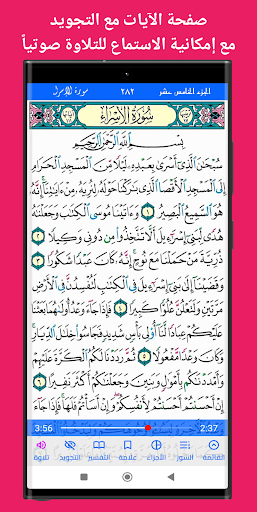 صفحة الآيات مع التجويد
مع إمكانية الاستماع للتلاوة صوتياً
الجزء الخامس عشر ٢٨٢ سورة الإسراء
سُورَةُ الإِسْرَاءِ
بِسْمِ اللَّهِ الرَّحْمَٰنِ الرَّحِيمِ
سُبْحَٰنَ الَّذِي أَسْرَىٰ بِعَبْدِهِ لَيْلًا مِّنَ الْمَسْجِدِ الْحَرَامِ
إِلَى الْمَسْجِدِ الْأَقْصَا الَّذِي بَٰرَكْنَا حَوْلَهُ لِنُرِيَهُ مِنْ ءَايَٰتِنَا إِنَّهُ
هُوَ السَّمِيعُ الْبَصِيرُ ١ وَءَاتَيْنَا مُوسَى الْكِتَٰبَ وَجَعَلْنَٰهُ
هُدًى لِّبَنِي إِسْرَٰٓءِيلَ أَلَّا تَتَّخِذُوا مِن دُونِي وَكِيلًا ٢
ذُرِّيَّةَ مَنْ حَمَلْنَا مَعَ نُوحٍ إِنَّهُ كَانَ عَبْدًا شَكُورًا ٣
وَقَضَيْنَا إِلَىٰ بَنِي إِسْرَٰٓءِيلَ فِي الْكِتَٰبِ لَتُفْسِدُنَّ فِي الْأَرْضِ
مَرَّتَيْنِ وَلَتَعْلُنَّ عُلُوًّا كَبِيرًا ٤ فَإِذَا جَاءَ وَعْدُ أُولَىٰهُمَا بَعَثْنَا
عَلَيْكُمْ عِبَادًا لَّنَا أُولِي بَأْسٍ شَدِيدٍ فَجَاسُوا خِلَٰلَ الدِّيَارِ
وَكَانَ وَعْدًا مَّفْعُولًا ٥ ثُمَّ رَدَدْنَا لَكُمُ الْكَرَّةَ عَلَيْهِمْ
وَأَمْدَدْنَٰكُم بِأَمْوَٰلٍ وَبَنِينَ وَجَعَلْنَٰكُمْ أَكْثَرَ نَفِيرًا ٦
إِنْ أَحْسَنتُمْ أَحْسَنتُمْ لِأَنفُسِكُمْ وَإِنْ أَسَأْتُمْ فَلَهَا فَإِذَا جَاءَ
3:56 2:37
القائمة السور الأجزاء علامة التفسير التجويد تلاوة